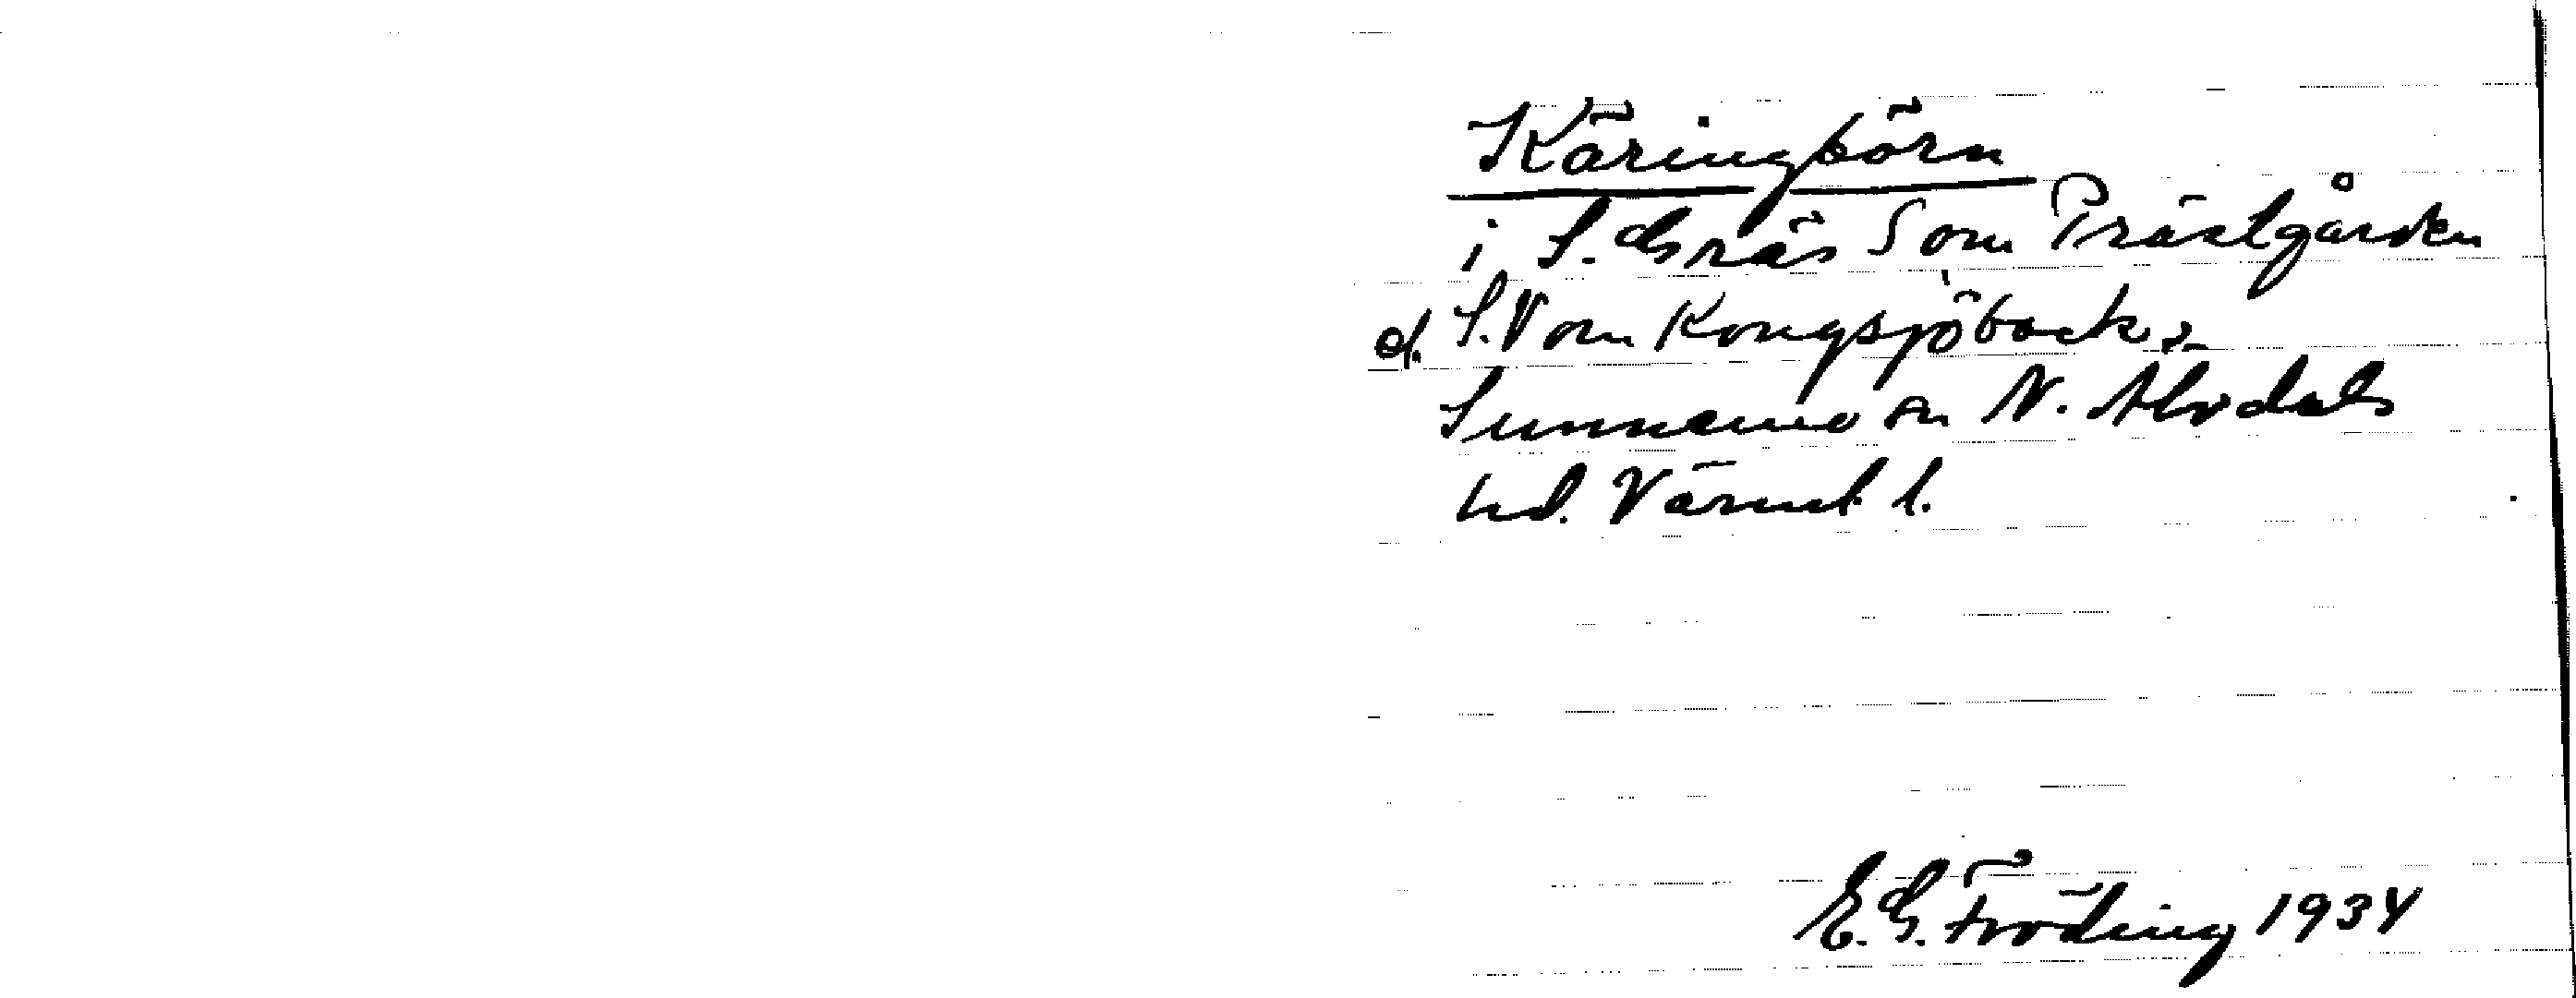 Käringbörn
i S. Gräs S om Prästgården
d. S.V om Kongsjöbacks
Sunnemo sn N. Älvdals
hd. Värml. l.
E. G. Fröding 1934